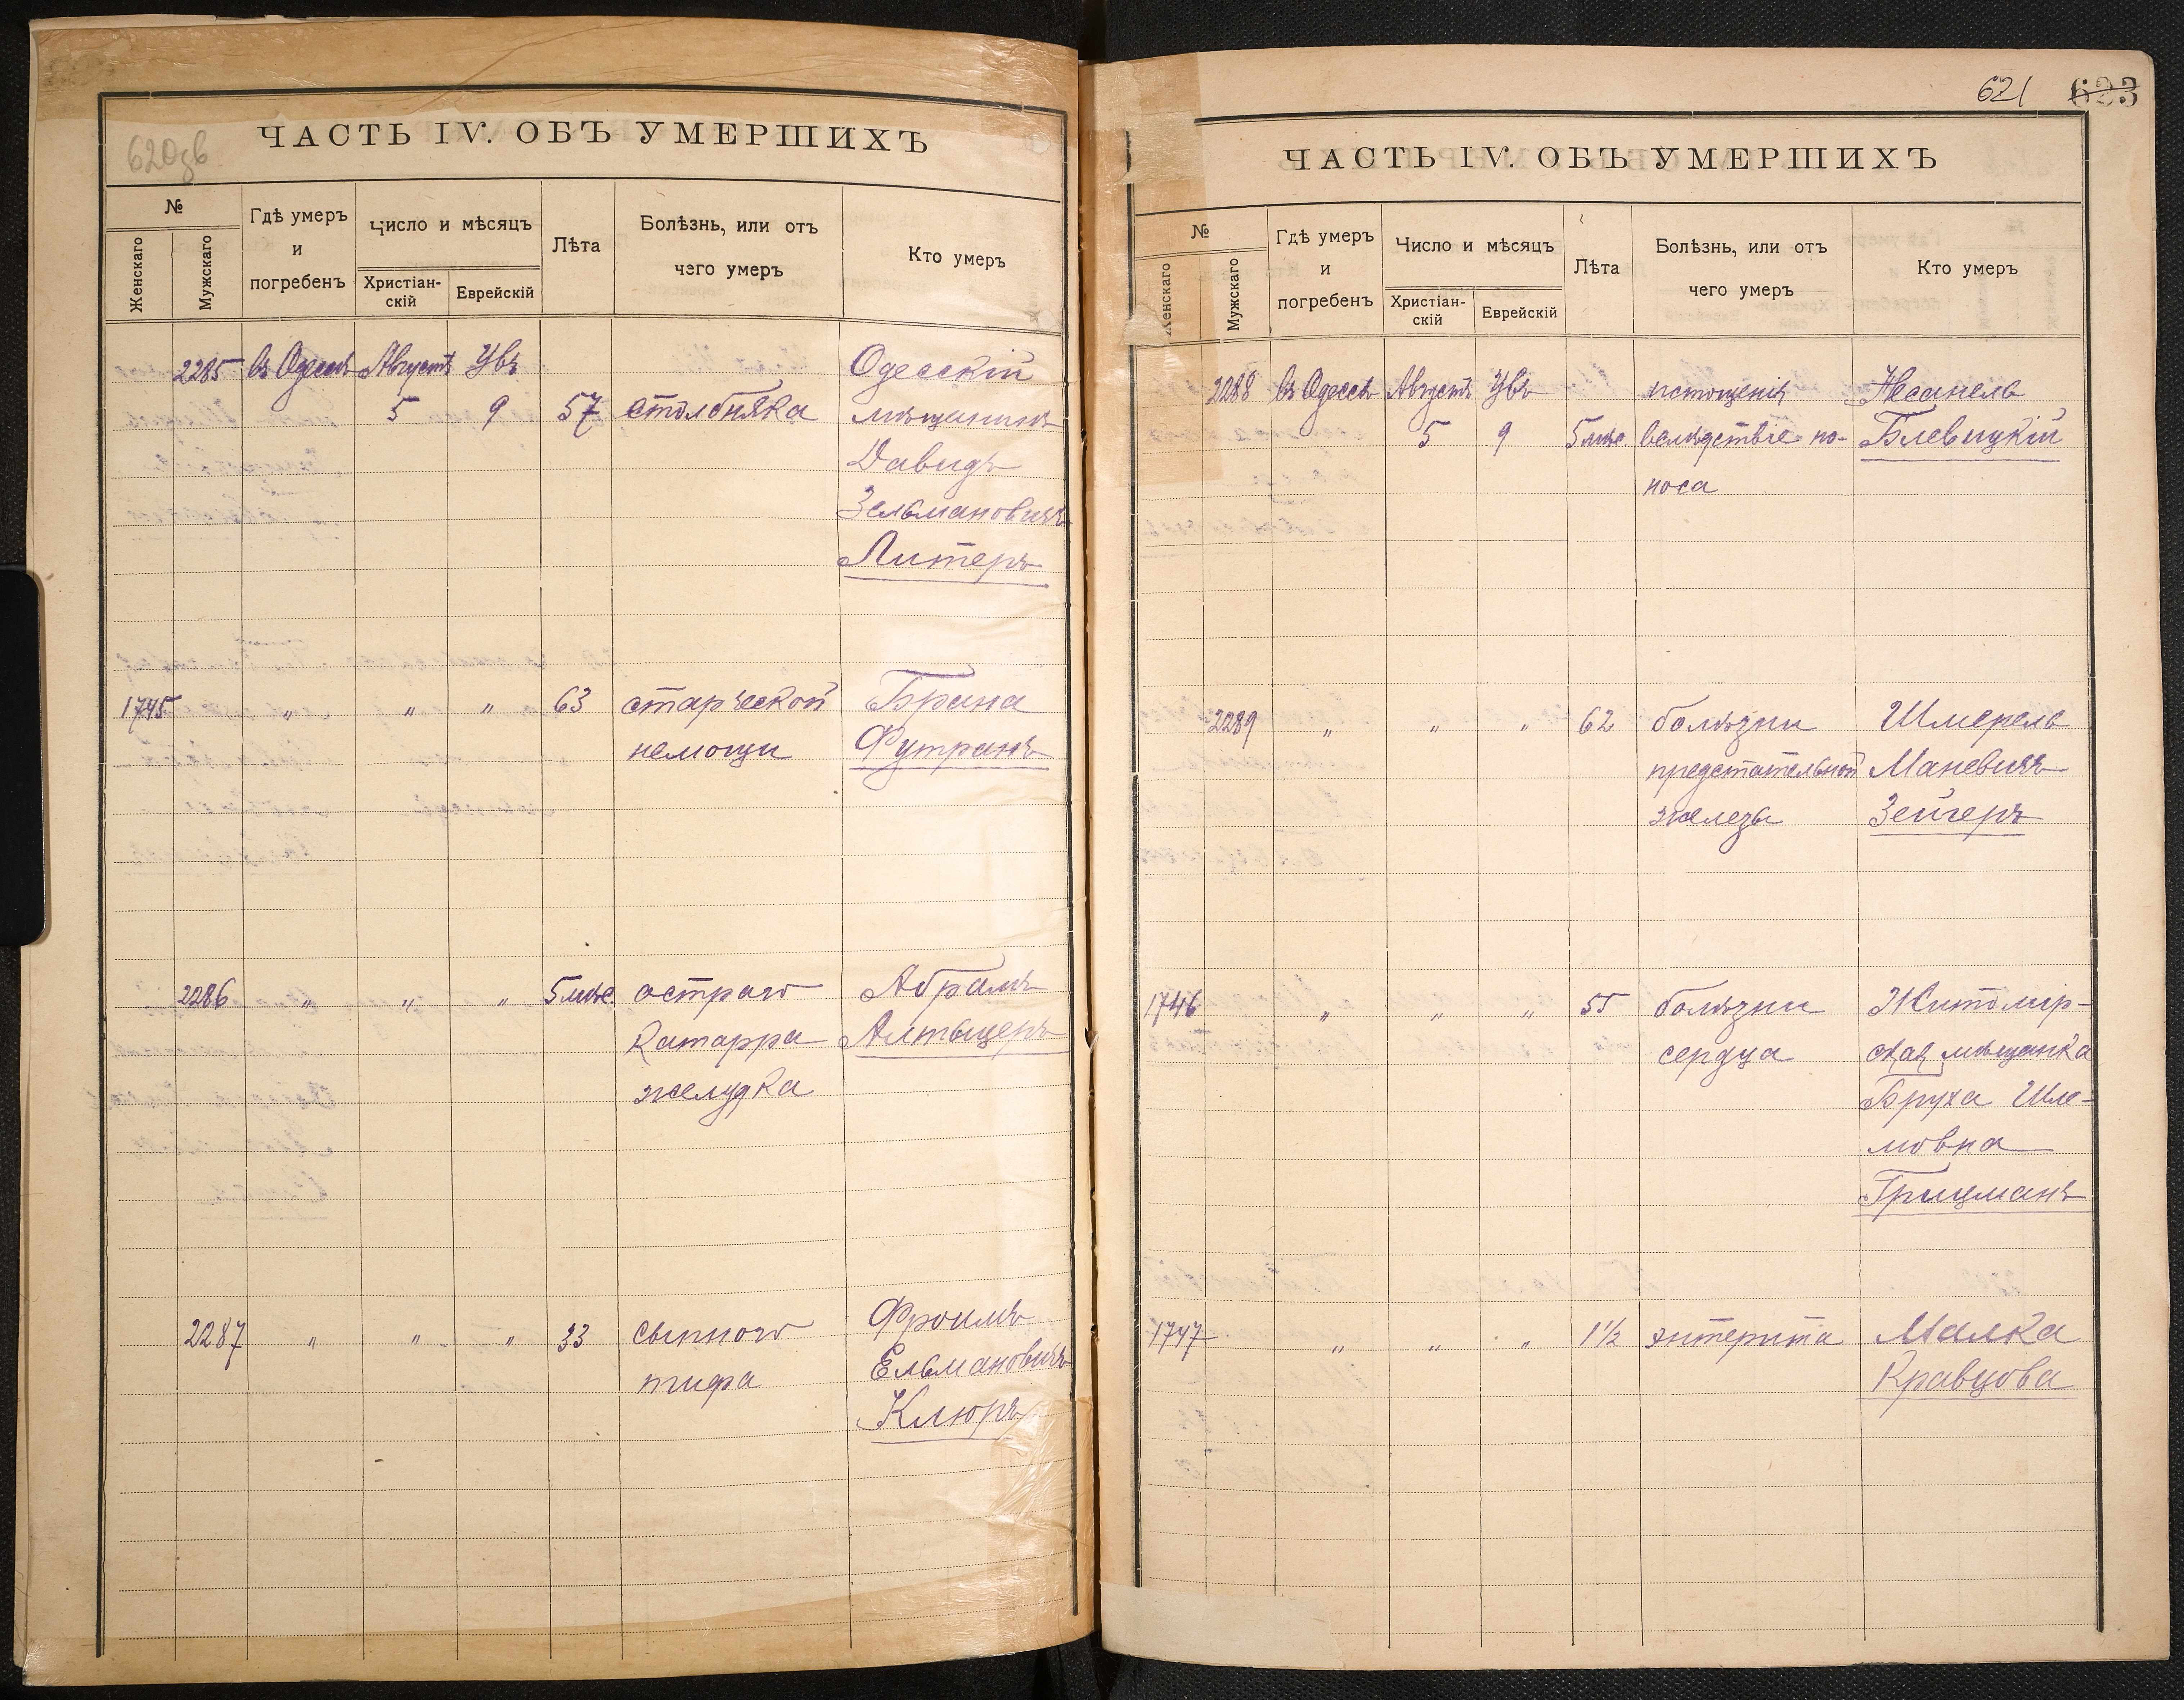 620 об
ЧАСТЬ IV. ОБЪ УМЕРШИХЪ
№
Женскаго
Мужскаго
Гдѣ умеръ
и
погребенъ
Число и мѣсяцъ
Христіан-
скій
Еврейскій
Лѣта
Болѣзнь, или отъ
чего умеръ
Кто умеръ
2285 въ Одессѣ Августъ Увъ Одесскій
5 9 57 столбняка мѣщанинъ
Давидъ
Зельмановичъ
Литеръ
1745 " " " 63 старческой Брана
немощи Футранъ
2286 " " " 5 мѣс. остраго Абрамъ
катарра Альтыцеръ
желудка
2287 " " " 33 сыпного Фроимъ
тифа Ельмановичъ
Клюръ
621 623
ЧАСТЬ IV. ОБЪ УМЕРШИХЪ
№
Женскаго
Мужскаго
Гдѣ умеръ
и
погребенъ
Число и мѣсяцъ
Христіан-
скій
Еврейскій
Лѣта
Болѣзнь, или отъ
чего умеръ
Кто умеръ
2288 въ Одессѣ Августъ Увъ истощенія Несанель
5 9 5 мѣс. вслѣдствіе по- Блевицкій
носа
2289 " " " 62 болѣзни Шмерель
предстательной Маневичъ
железы Зейгеръ
1746 " " " 55 болѣзни Житомір-
сердца ская мѣщанка
Бруха Шле-
мовна
Грицманъ
1747 " " " 1½ энтерита Малка
Кравцова